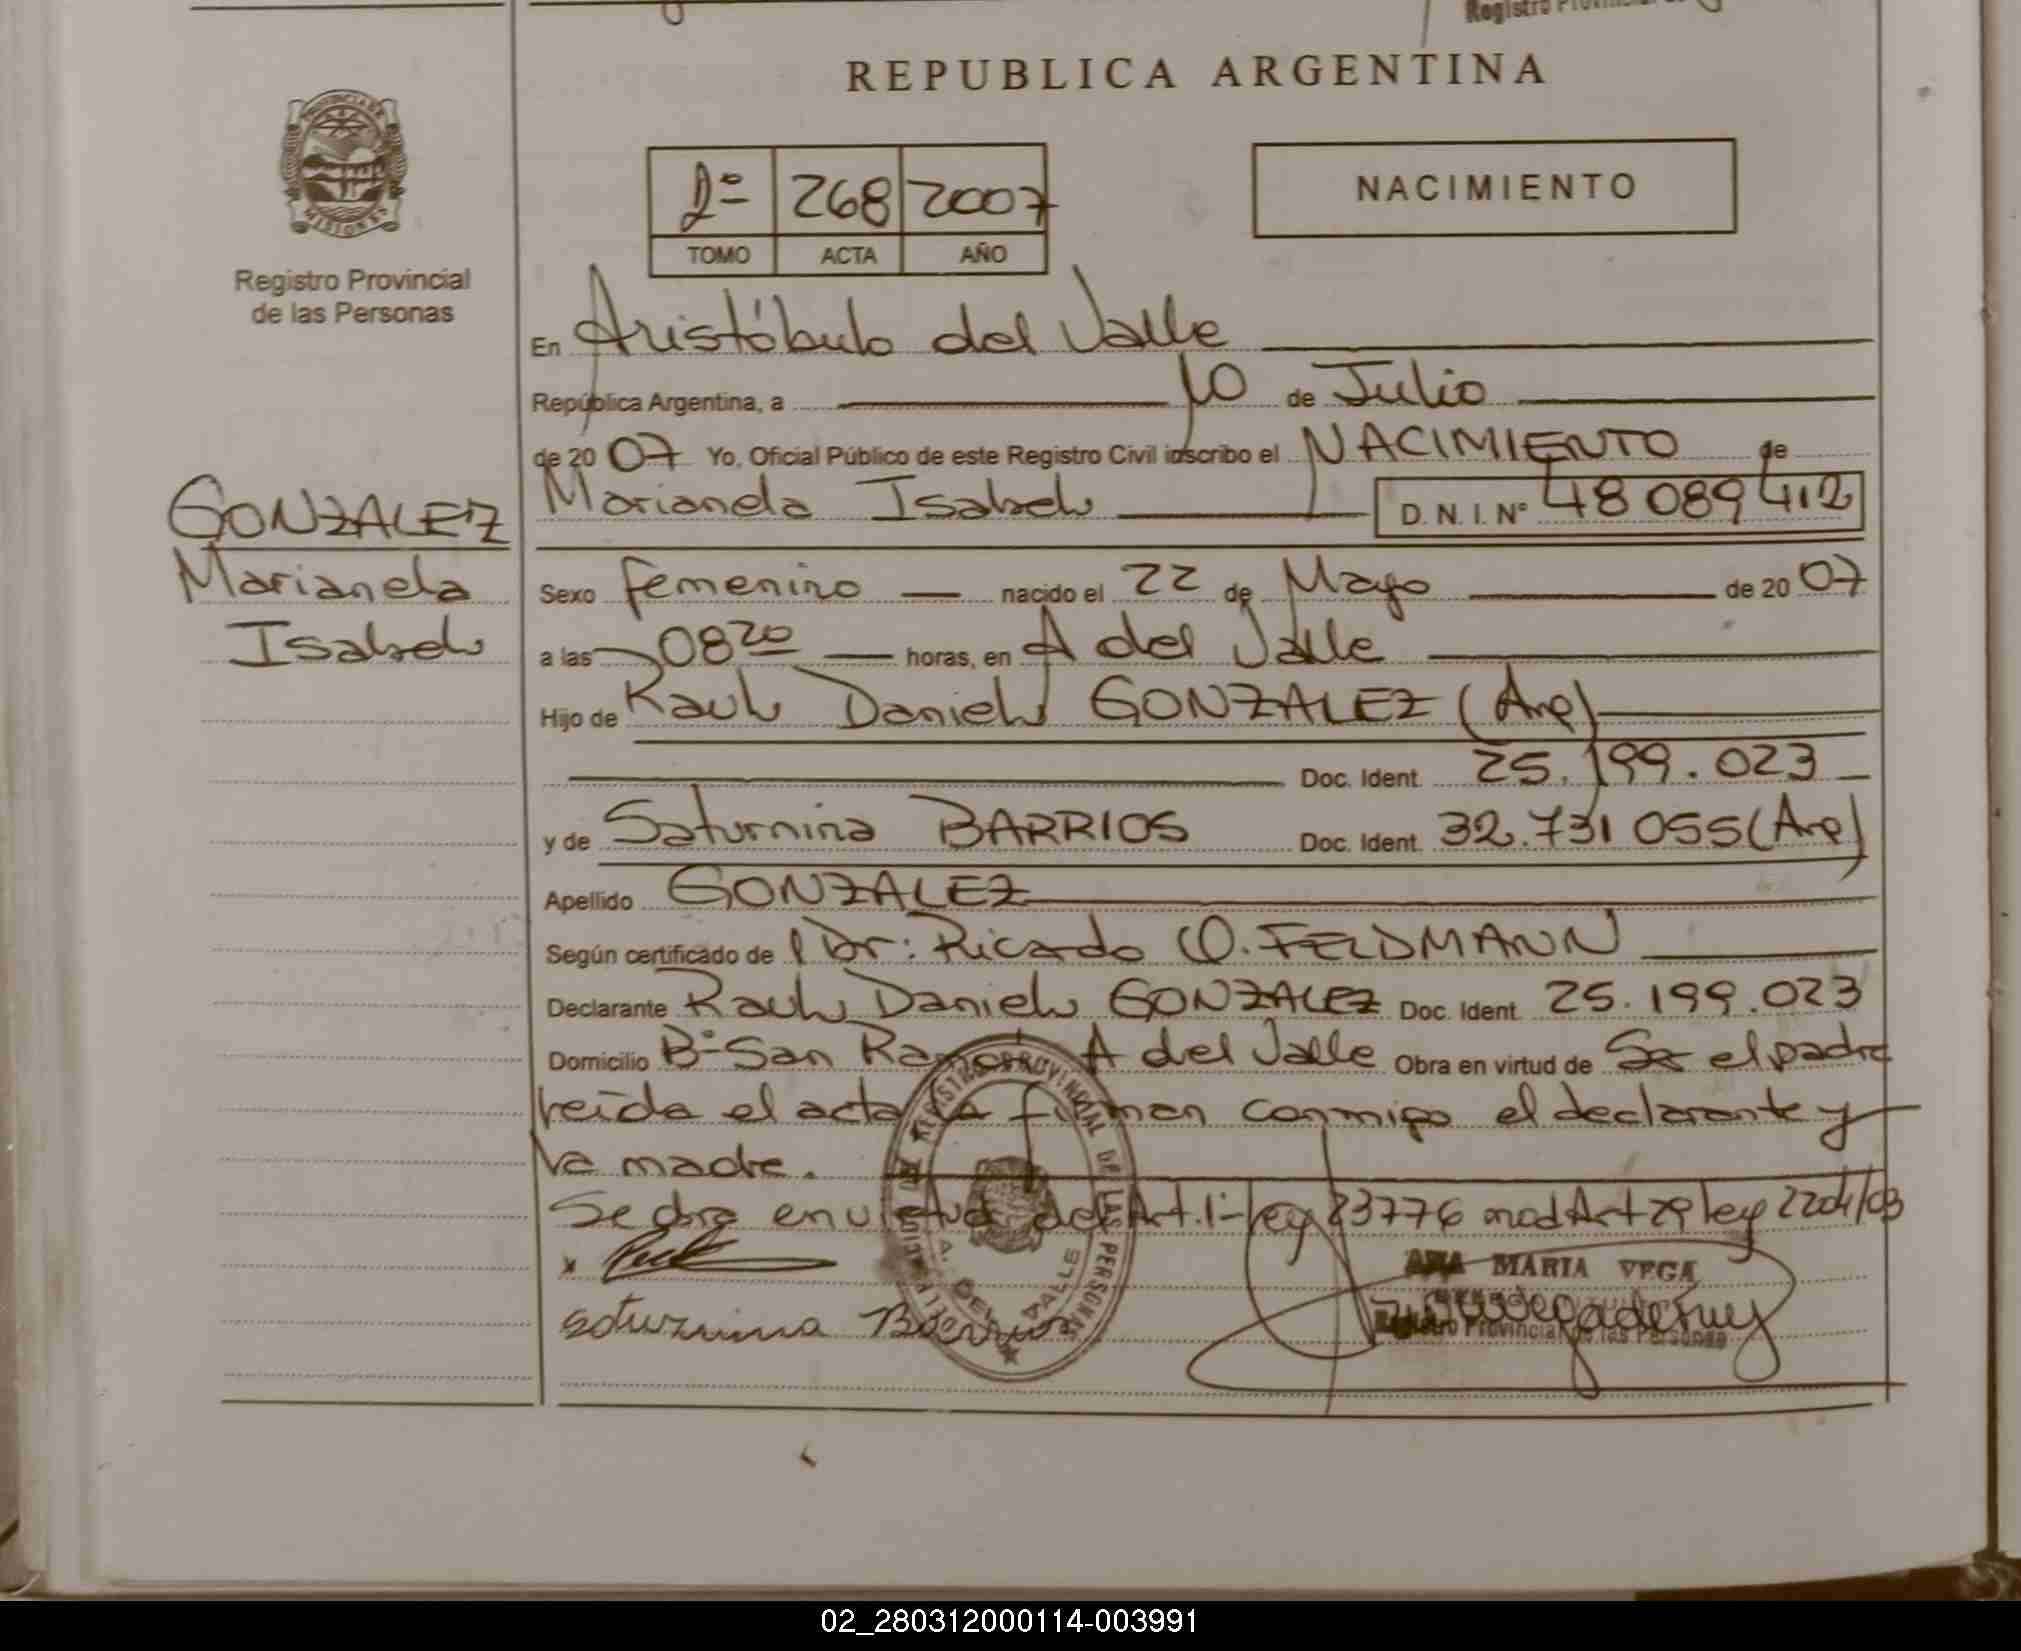 Registro Provincial
REPUBLICA ARGENTINA
PROVINCIA DE
MISIONES
Registro Provincial
de las Personas
2º 268 2007
TOMO ACTA AÑO
NACIMIENTO
En Aristóbulo del Valle
República Argentina, a 10 de Julio
de 20 07 Yo, Oficial Público de este Registro Civil inscribo el NACIMIENTO de
GONZALEZ
Marianela
Isabel
Marianela Isabel D. N. I. Nº 48 089 412
Sexo femenino nacido el 22 de Mayo de 20 07
a las 08 20 horas, en A del Valle
Hijo de Raul Daniel GONZALEZ (Arg)
Doc. Ident. 25.199.023
y de Saturnina BARRIOS Doc. Ident. 32.731 055 (Arg)
Apellido GONZALEZ
Según certificado de Dr: Ricardo O. FELDMANN
Declarante Raul Daniel GONZALEZ Doc. Ident. 25.199.023
Domicilio Bº San Ramón A del Valle Obra en virtud de Se el padre
leida el acta la firman conmigo el declarante y
la madre.
Se obra en virtud del Art. 1- ley 23776 mod Art 29 ley 2204/03
REGISTRO PROVINCIAL DE LAS PERSONAS
A. DEL VALLE
ANA MARIA VEGA
Registro Provincial de las Personas
saturnina Barrios
02_280312000114-003991